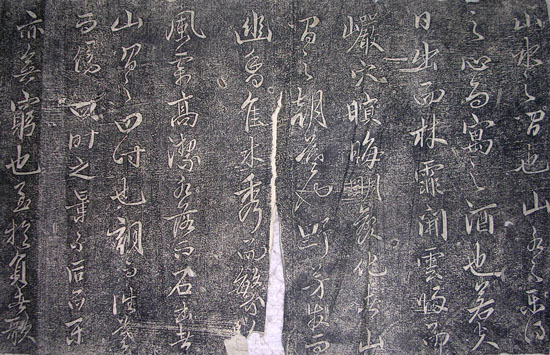 山水之間也山水之樂得
之心而寓之酒也若夫
日出而林霏開雲歸而
巖穴暝晦明變化者山
間之朝暮也野芳發而
幽香佳木秀而繁陰
風霜高潔水落而石出者
山間之四時也朝而往暮
而歸四時之景不同而樂
亦無窮也至於負者歌